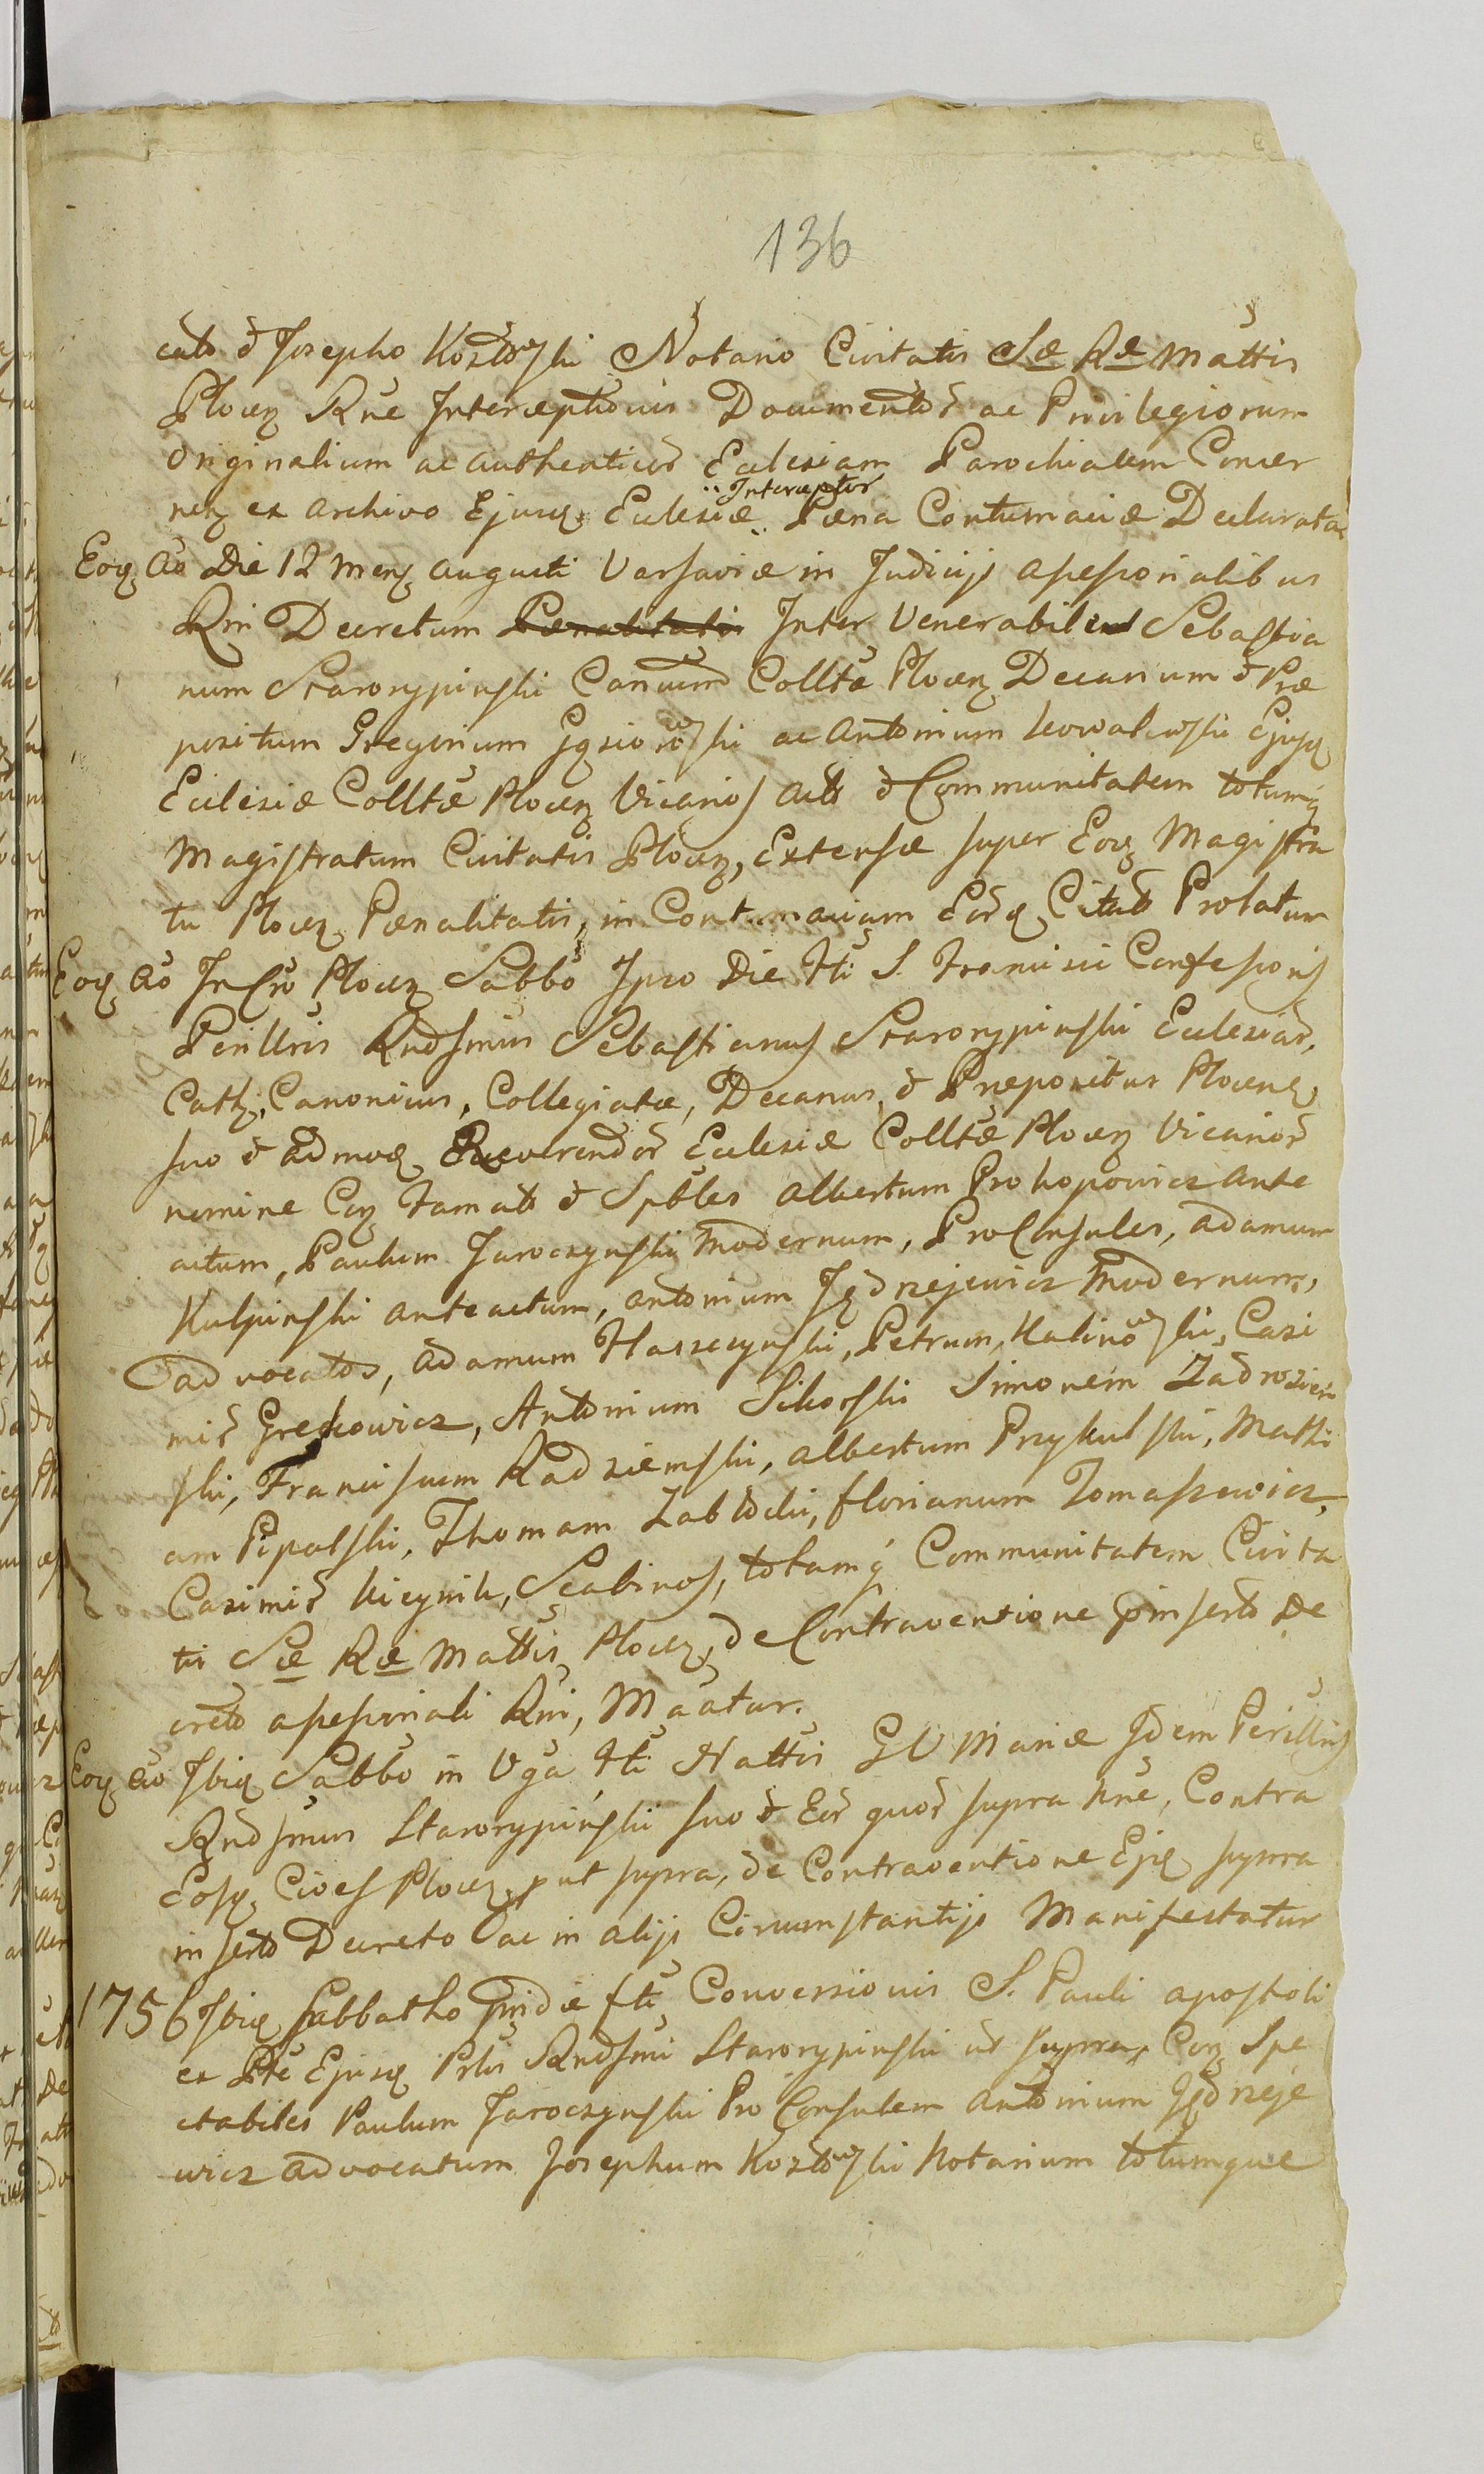 136
cato et Josepho Kozłowski Notario Civitatis Sæ Ræ Mattis
Plocen Rne Interceptionis Documentor ac Privilegiorum
Originalium ac authenticor Eclesiam Parochialem Concer
nen ex Archivo Ejusq Eclesiæ Pæna Contumaciæ Declarata
Interceptor
Eoq Ao Die 12 Mens Augusti Varsaviæ in Judicijs Assessorialibus
Rni Decretum Pænalitatis Inter Venerabilem Sebastia
num Starorypinski Cancum Colltæ Plocen Decanum et Præ
positum Gregorium Gąsiorowski ac Antonium Kowalewski Ejusq
Eclesiæ Colltæ Plocen Vicarios act et Communitatem totumq
Magistratum Civitatis Plocen, Extensæ super Eoq Magistra
tu Plocen Pænalitatis, in Contumaciam Eorq Citat Prolatum
Eoq Ao In Cro Plocen Sabbo Ipso Die Fti S. Francisci Confessoris
Perillris Rndsmus Sebastianus Starorypinski Eclesiar.
Cath, Canonicus, Collegiatæ, Decanus, et Præpositus Plocens
suo et admoq Reverendor Eclesiæ Colltæ Plocen Vicarior
nomine Con Famat et Spbles Albertum Prokopowicz ante
actum, Paulum Jaroczynski Modernum, ProConsules, Adamum
Kulpinski anteactum, Antonium Jędrzejewicz Modernum,
Advocatos, Adamum Harzecynski, Petrum Kalinowski, Casi
mir Greckowicz, Antonium Sikorski Simonem Zadrozien
ski, Franciscum Radziemski, Albertum Przykulski, Mathi
am Pepalski, Thomam Zabłocki, Florianum Tomaszewicz,
Casimir Kicynik, Scabinos, totamq Communitatem Civita
tis Sæ Ræ Mattis Plocen, de Contraventione pinserto De
creto assessoriali Rni, Maatur.
Eoq Ao Ibiq Sabbo in Vga Fti Nattis G V Mariæ Idem Perillris
Rndsmus Starorypinski suo et Eor quor supra nne, Contra
Eosq Cives Plocen, ut supra, de Contraventione Ejq supra
inserto Decreto ac in alijs Circumstantijs Manifestatur
1756 Ibiq Sabbatho pridie fti Conversionis S. Pauli apostoli
ex Pte Ejusq Prlis Rndsmi Starorypinski ut supra, Con Spe
ctabiles Paulum Jaroczynski Pro Consulem Antonium Jędrzeje
wicz advocatum Josephum Kozłowski Notarium totumque